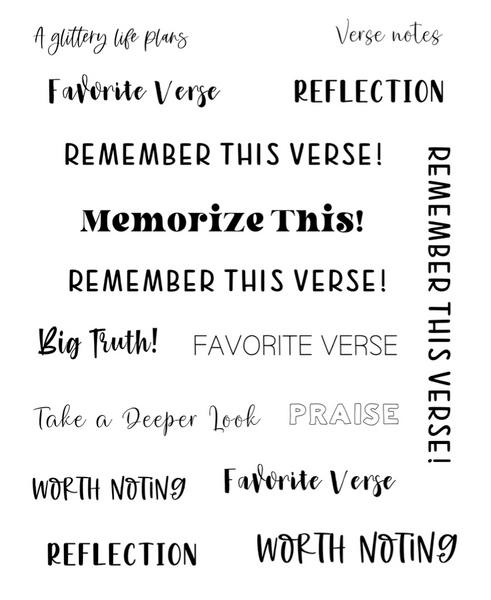 A glittery life plans
Verse notes
Favorite Verse
REFLECTION
REMEMBER THIS VERSE!
REMEMBER THIS VERSE!
Memorize This!
REMEMBER THIS VERSE!
Big Truth!
FAVORITE VERSE
Take a Deeper Look
PRAISE
WORTH NOTING
Favorite Verse
REFLECTION
WORTH NOTING